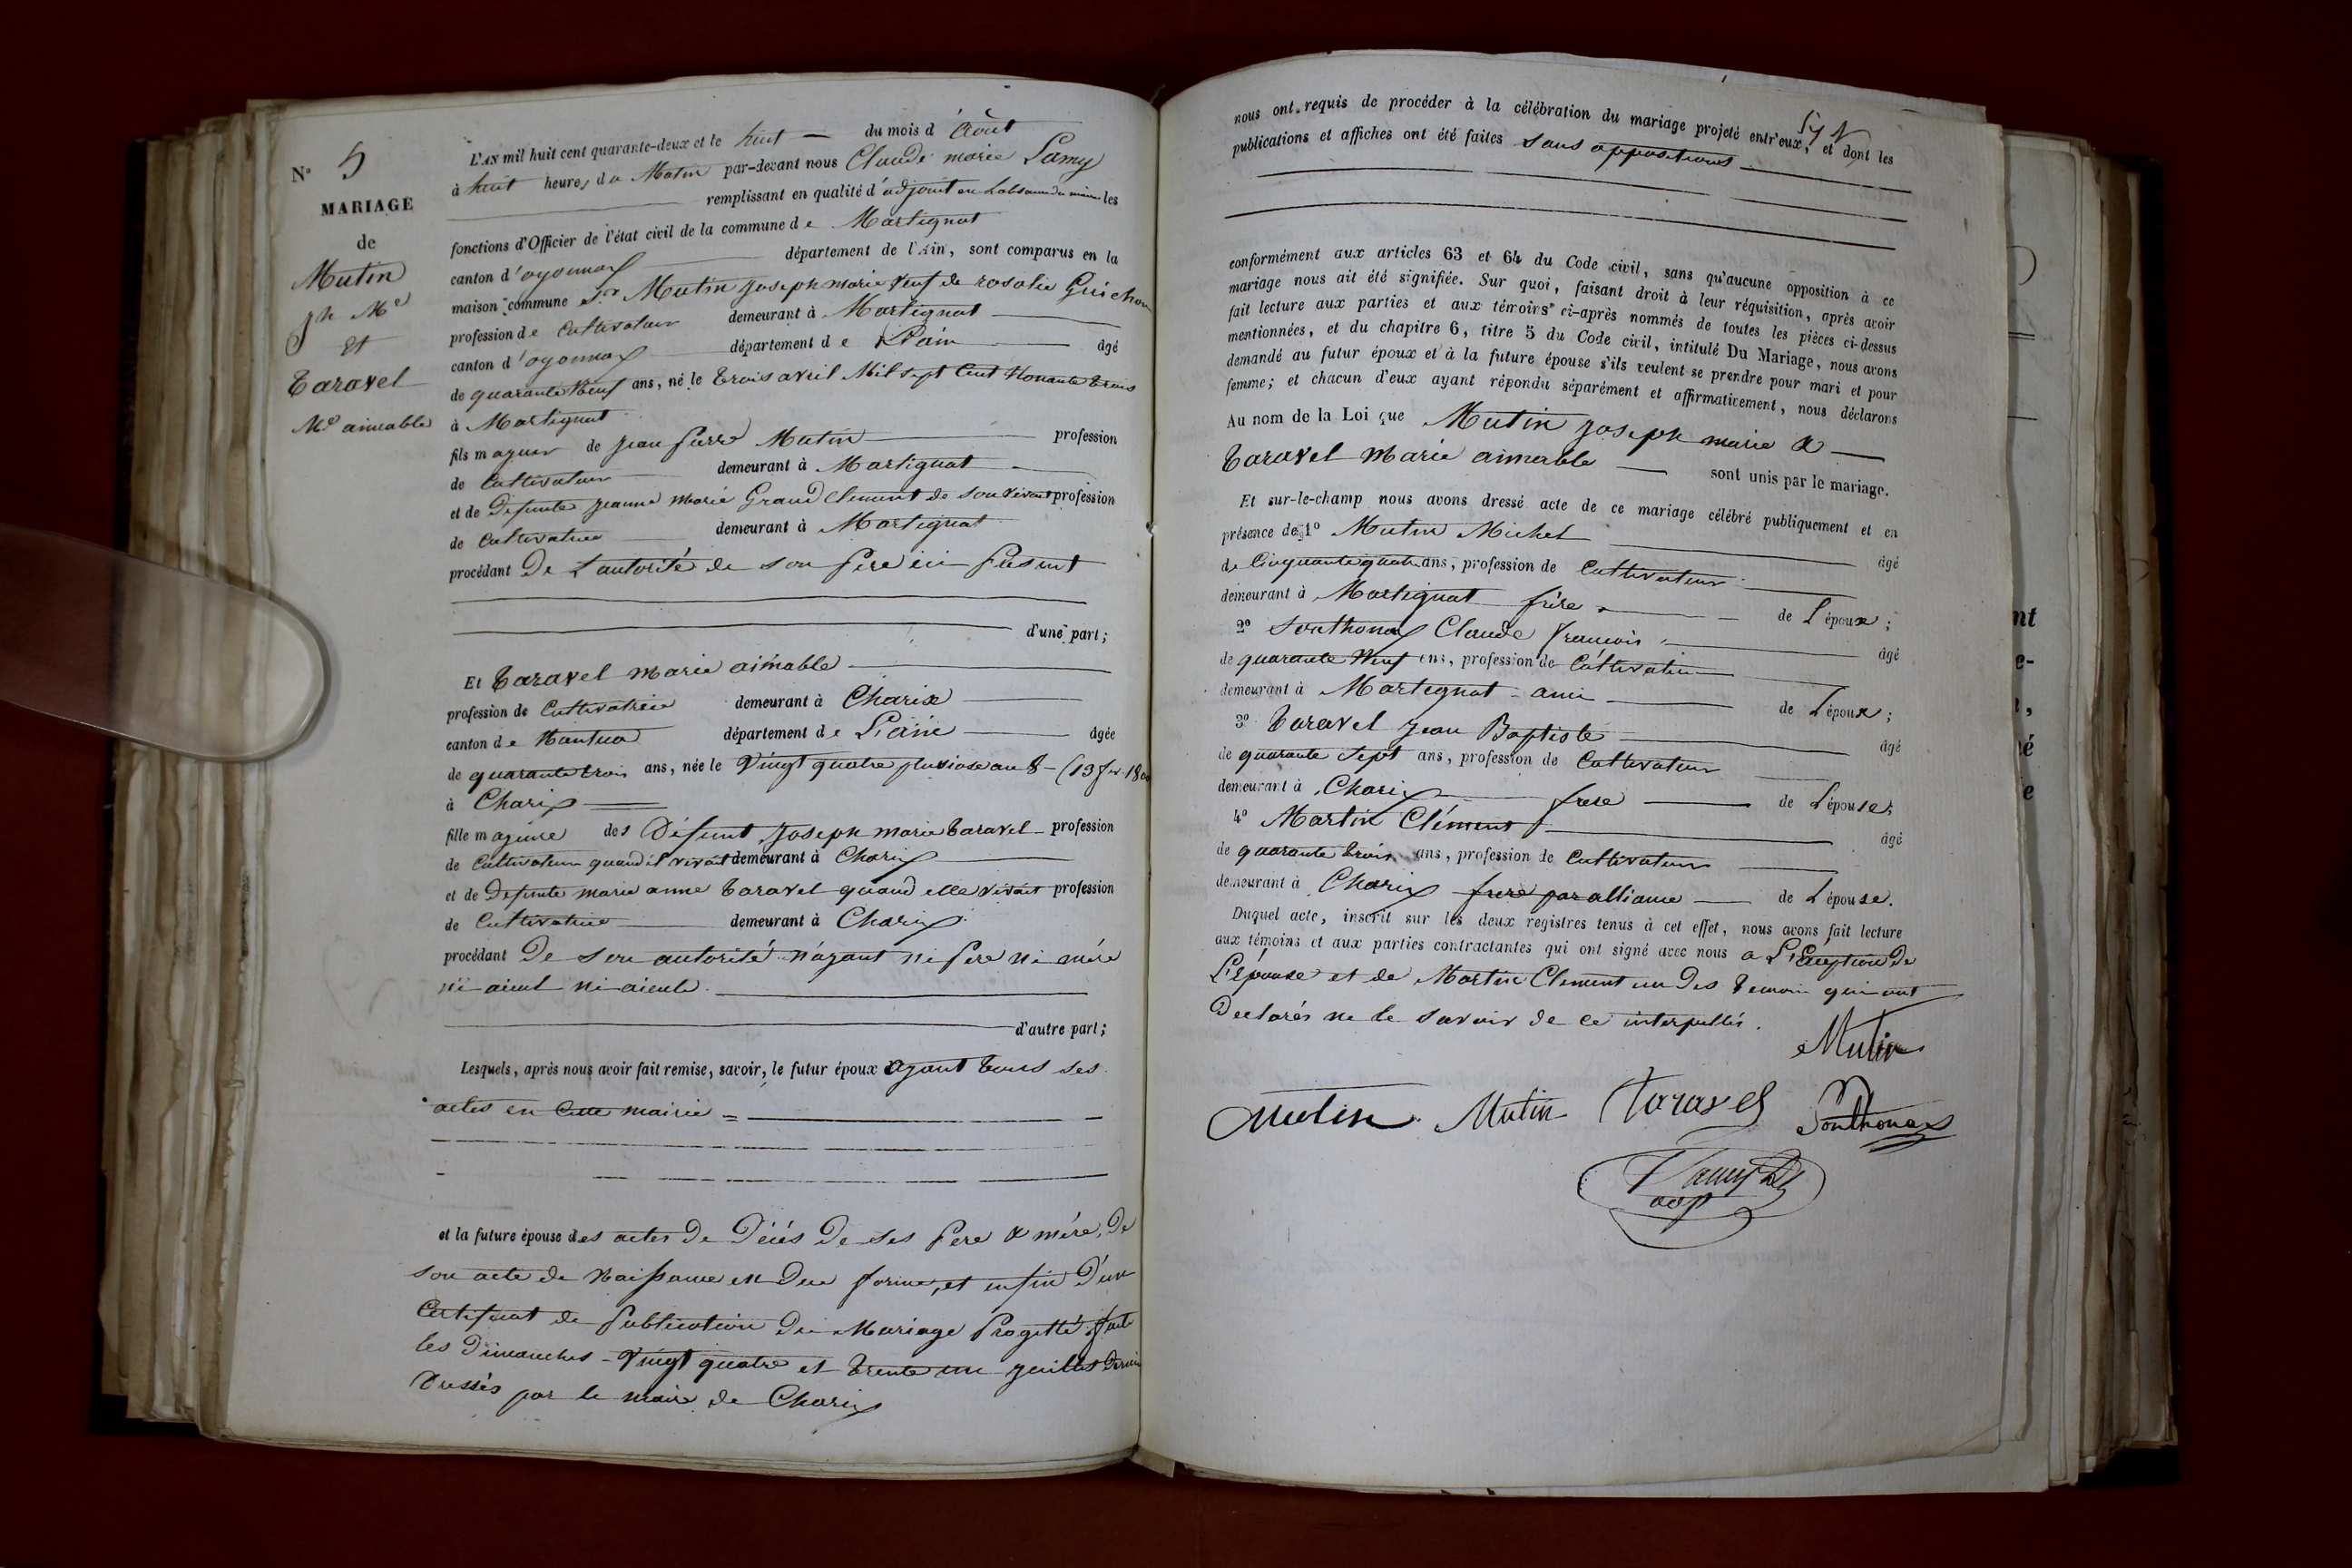 N° 5
MARIAGE
de
Mutin
jh Me
et
Taravel
Me aimable
L'AN mil huit cent quarante-deux et le huit du mois d'Août
à huit heures du Matin par-devant nous Claude marie Lamy
remplissant en qualité d'adjoint en Labsence du maire les
fonctions d'Officier de l'état civil de la commune de Martignat
canton d'oyonnax département de l'Ain, sont comparus en la
maison commune Sr Mutin joseph marie veuf de rosalie Guichon
profession de Cultivateur demeurant à Martignat
canton d'oyonnax département de L'ain âgé
de quarante Neuf ans, né le trois avril Mil sept Cent Nonante trois
à Martignat
fils majeur de jean pierre Mutin profession
de Cultivateur demeurant à Martignat
et de Defunte jeanne marie Grand Clement de son vivant profession
de Cultivatrice demeurant à Martignat
procédant De L'autorité de son pere ici present
d'une part;
Et Taravel marie aimable
profession de Cultivatrice demeurant à Charix
canton de Nantua département de L'ain âgée
de quarante trois ans, née le Vingt quatre pluviose an 8 - (13 fer 180
à Charix
fille majeure des Défunt joseph marie Taravel profession
de Cultivateur quand il vivait demeurant à Charix
et de Defunte marie anne Taravel quand elle vivait profession
de Cultivatrice demeurant à Charix
procédant De son autorité n'ayant ni pere ni mére
ni aieul ni aieule.
d'autre part;
Lesquels, après nous avoir fait remise, savoir, le futur époux ayant tous ses
actes en Cette mairie =
et la future épouse des actes De Décés De ses pere & mére, De
son acte de Naissance en Due forme, et enfin D'un
Certificat de publication Du Mariage Progetté fait
les Dimanches Vingt quatre et trente un juillet Dernier
Dressés par le maire de Charix
nous ont requis de procéder à la célébration du mariage projeté entr'eux, et dont les
publications et affiches ont été faites sans oppositions
conformément aux articles 63 et 64 du Code civil, sans qu'aucune opposition à ce
mariage nous ait été signifiée. Sur quoi, faisant droit à leur réquisition, après avoir
fait lecture aux parties et aux témoins ci-après nommés de toutes les pièces ci-dessus
mentionnées, et du chapitre 6, titre 5 du Code civil, intitulé Du Mariage, nous avons
demandé au futur époux et à la future épouse s'ils veulent se prendre pour mari et pour
femme; et chacun d'eux ayant répondu séparément et affirmativement, nous déclarons
Au nom de la Loi que Mutin joseph marie &
Taravel Marie aimable sont unis par le mariage.
Et sur-le-champ nous avons dressé acte de ce mariage célébré publiquement et en
présence de 1° Mutin Michel âgé
de Cinquante quatre ans, profession de Cultivateur
demeurant à Martignat frére de L'époux;
2° Sonthonax Claude françois âgé
de quarante Neuf ans, profession de Cultivateur
demeurant à Martignat ami de L'époux;
3° Taravel jean Baptiste âgé
de quarante Sept ans, profession de Cultivateur
demeurant à Charix frere de L'épouse;
4° Martin Clément âgé
de quarante trois ans, profession de Cultivateur
demeurant à Charix frere par alliance de L'épouse.
Duquel acte, inscrit sur les deux registres tenus à cet effet, nous avons fait lecture
aux témoins et aux parties contractantes qui ont signé avec nous a L'Exeption De
L'épouse et de Martin Clement un Des temoin qui ont
Declarés ne le savoir de ce interpellés.
Mutin
Mutin Mutin Taravel Sonthonax
Lamy
adj